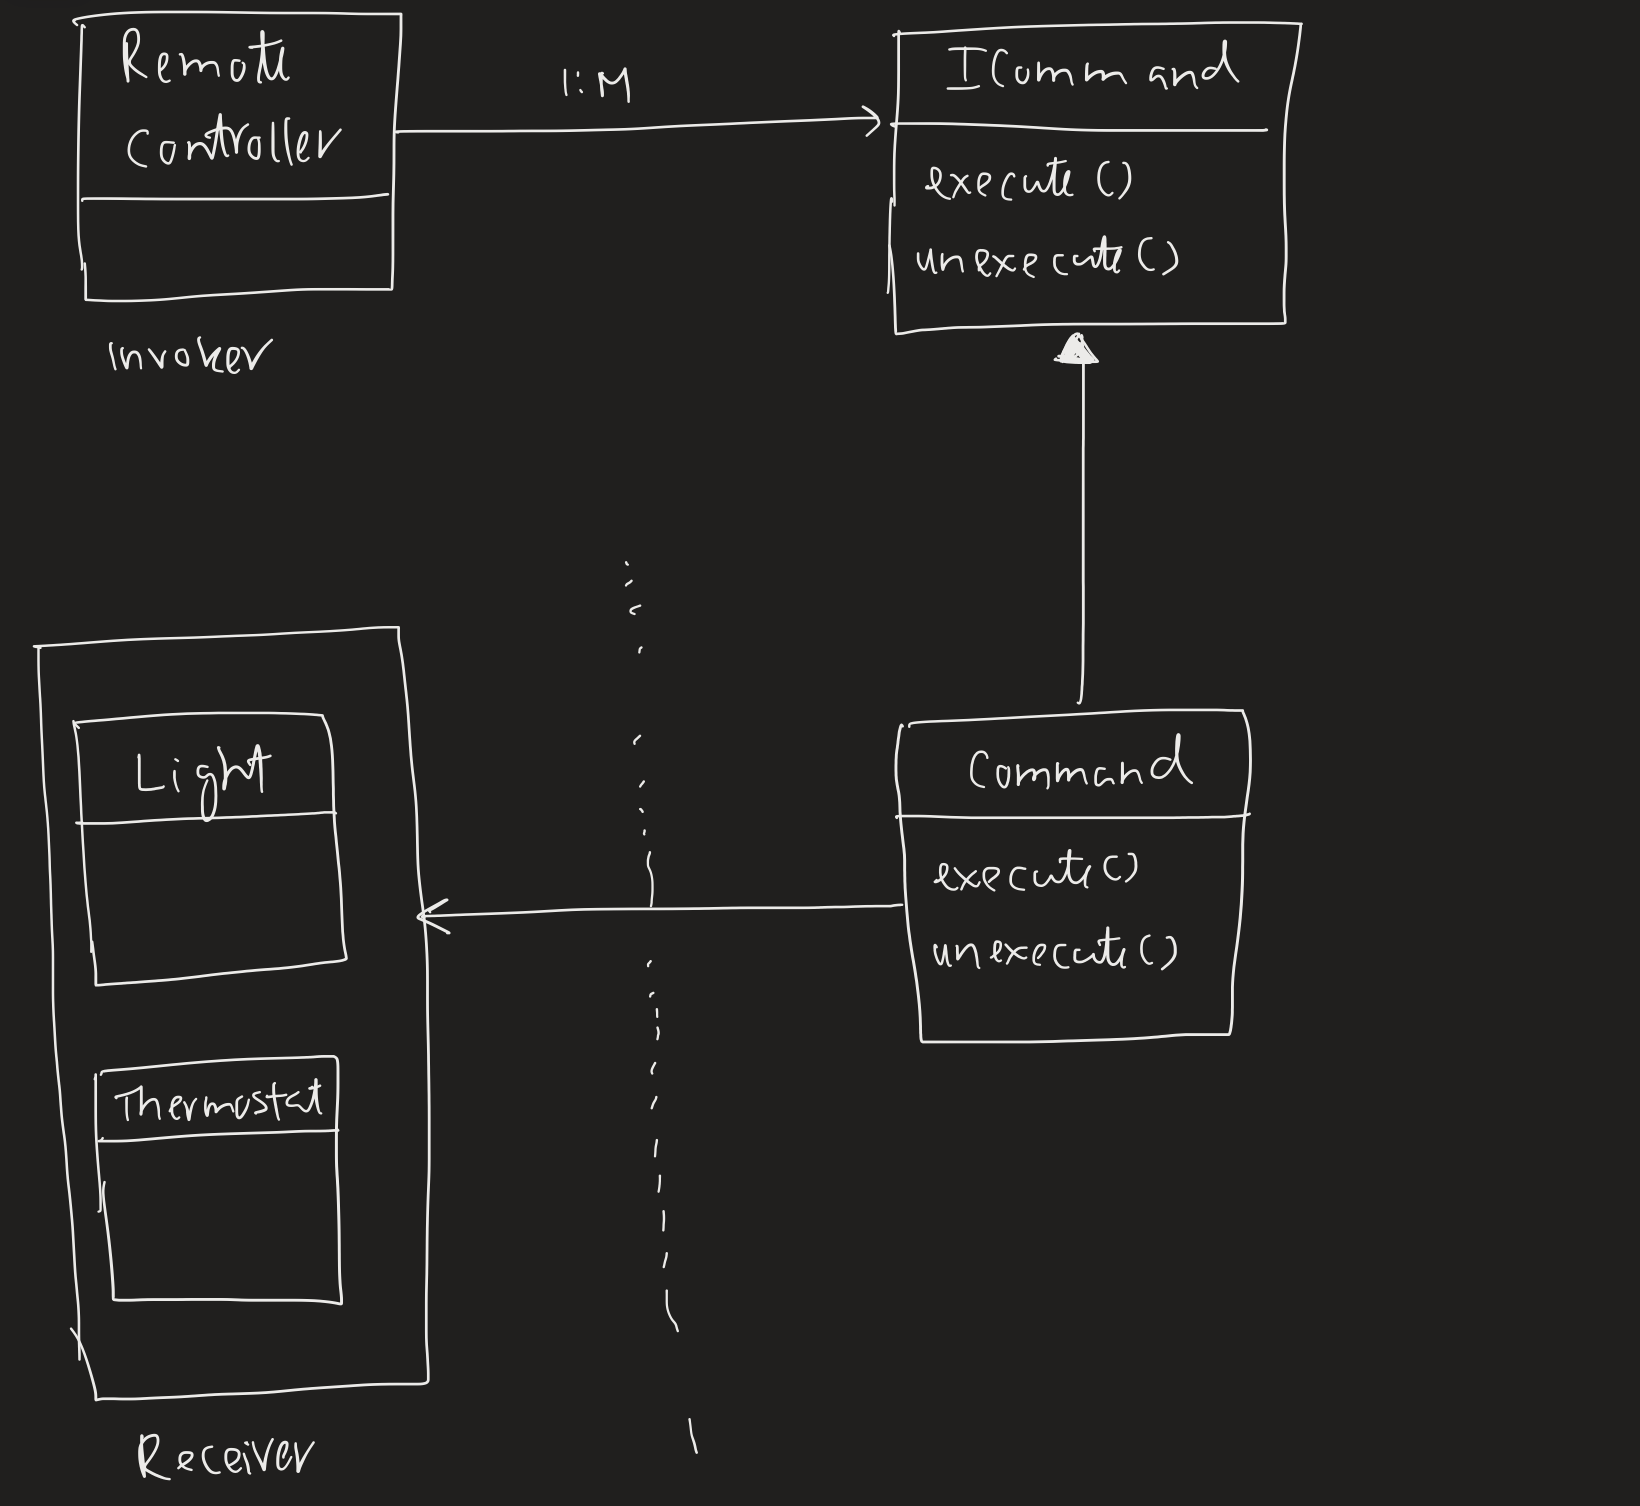 Remote
Controller
Invoker
1:M
ICommand
execute()
unexecute()
Light
Thermostat
Receiver
Command
execute()
unexecute()